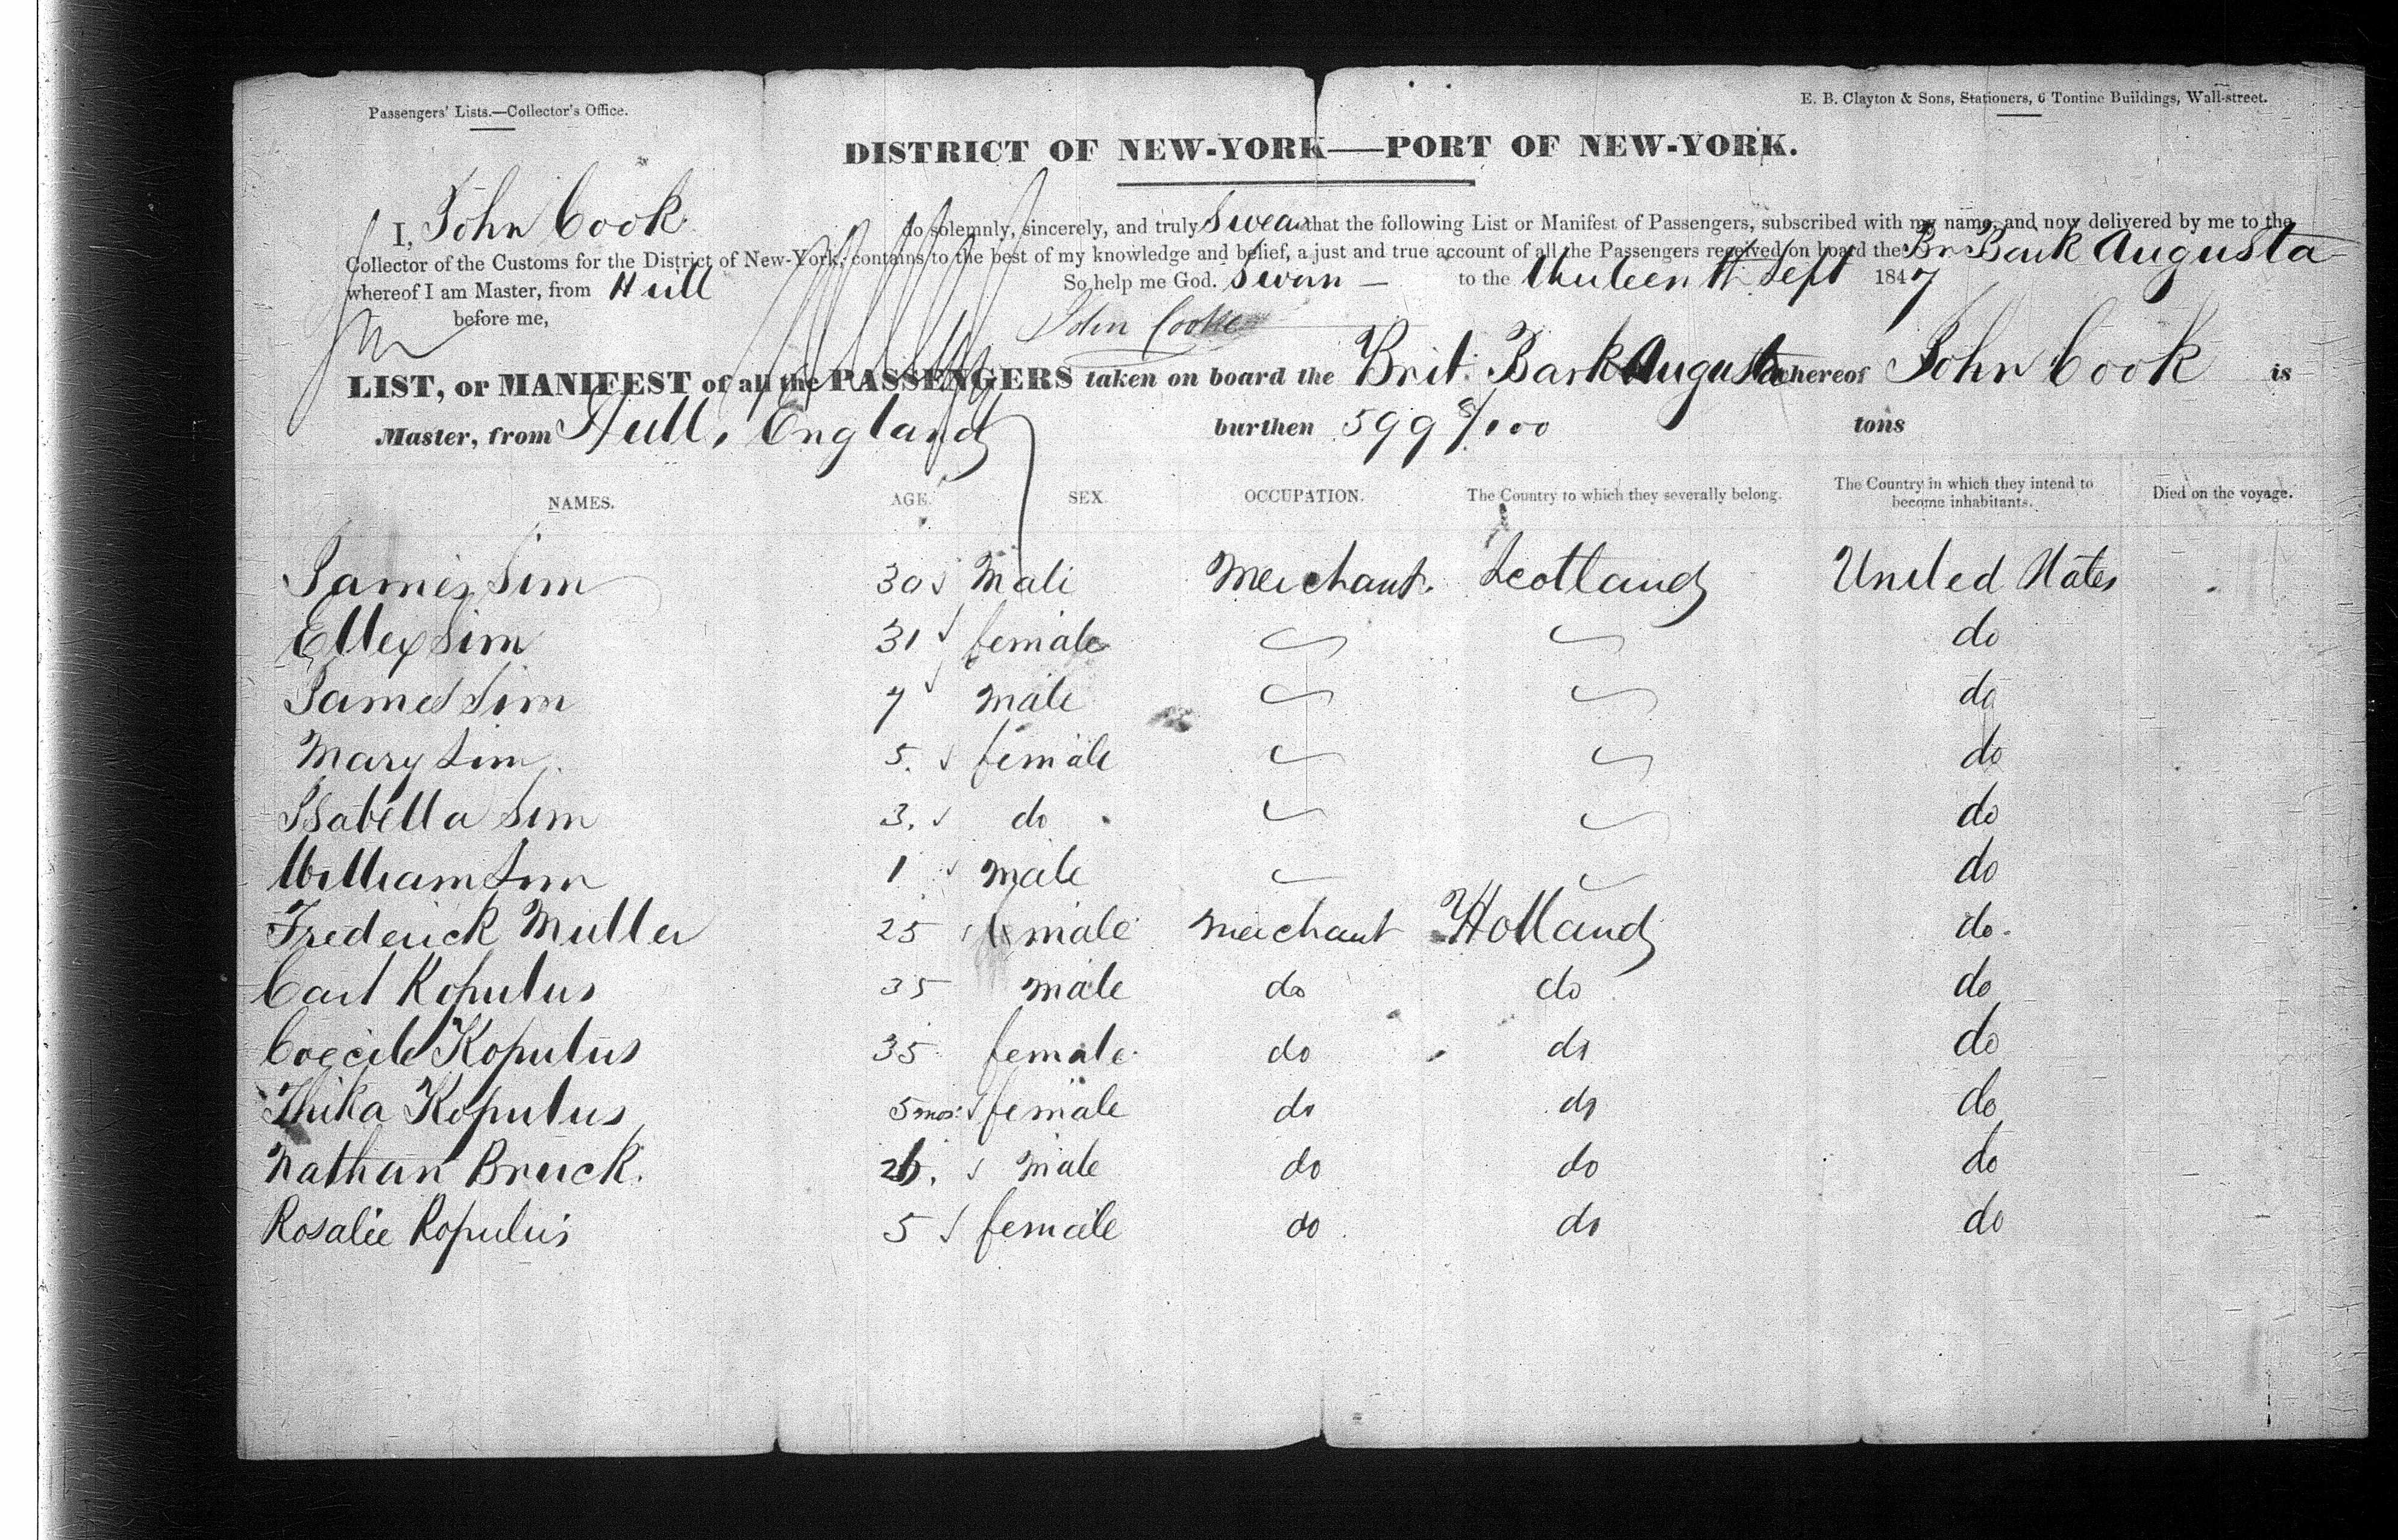 Passengers' Lists.—Collector's Office.
E. B. Clayton & Sons, Stationers, 6 Tontine Buildings, Wall-street.
DISTRICT OF NEW-YORK—PORT OF NEW-YORK.
I, John Cook do solemnly, sincerely, and truly Swear that the following List or Manifest of Passengers, subscribed with my name, and now delivered by me to the
Collector of the Customs for the District of New-York, contains to the best of my knowledge and belief, a just and true account of all the Passengers received on board the Br Bark Augusta
whereof I am Master, from Hull So help me God. Sworn — to the thirteenth Sept 1847
before me, John Cook
LIST, or MANIFEST of all the PASSENGERS taken on board the Brit. Bark Augusta whereof John Cook is
Master, from Hull, England burthen 599 8/100 tons
NAMES. AGE. SEX. OCCUPATION. The Country to which they severally belong. The Country in which they intend to become inhabitants. Died on the voyage.
James Sim 30 Male Merchant. Scotland United States
Ellex Sim 31 female do
James Sim 7 male do
Mary Sim 5. female do
Isabella Sim 3. do do
William Sim 1 male do
Frederick Muller 25 male merchant Holland do.
Carl Koputus 35 male do do do
Coecile Koputus 35 female do do do
Thika Koputus 5 mos: female do do do
Nathan Bruck. 26. male do do do
Rosalie Ropulus 5 female do do do